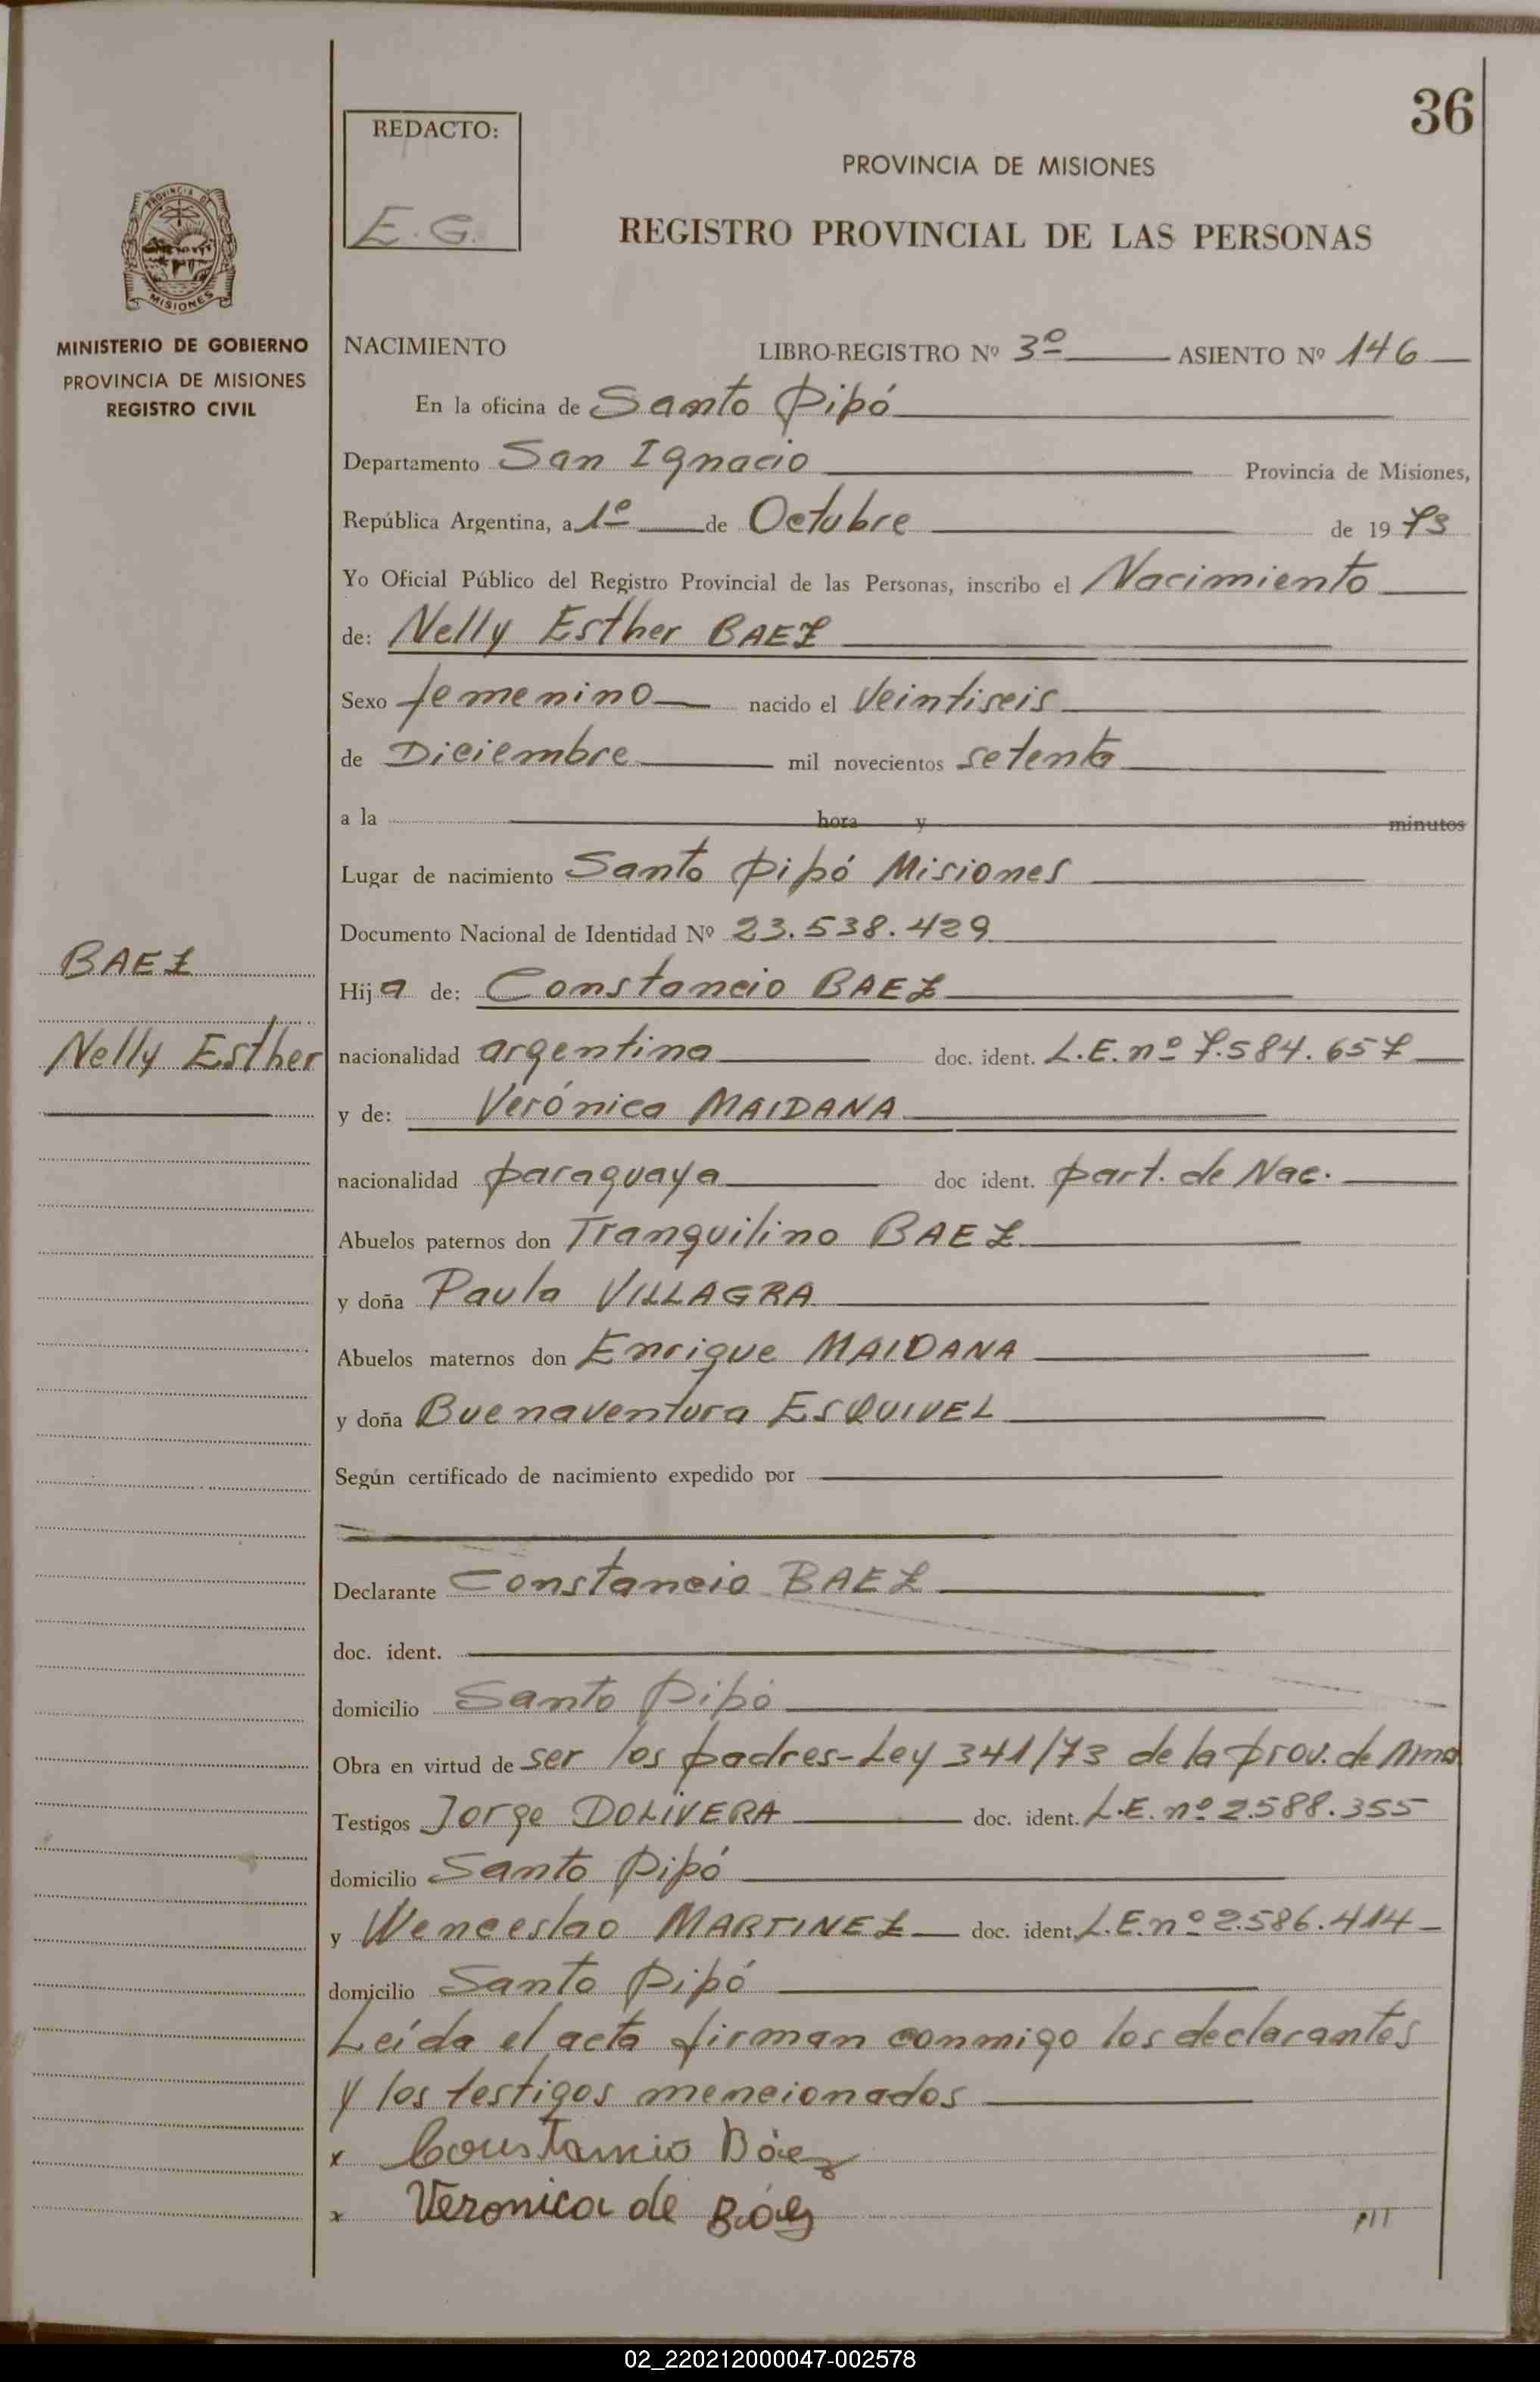 36
REDACTO:
E. G.
PROVINCIA DE MISIONES
REGISTRO PROVINCIAL DE LAS PERSONAS
PROVINCIA DE
MISIONES
MINISTERIO DE GOBIERNO
PROVINCIA DE MISIONES
REGISTRO CIVIL
NACIMIENTO LIBRO-REGISTRO Nº 3º ASIENTO Nº 146
En la oficina de Santo Pipó
Departamento San Ignacio Provincia de Misiones,
República Argentina, a 1º de Octubre de 1973
Yo Oficial Público del Registro Provincial de las Personas, inscribo el Nacimiento
de: Nelly Esther BAEZ
Sexo femenino nacido el Veintiseis
de Diciembre mil novecientos setenta
a la hora y minutos
Lugar de nacimiento Santo Pipó Misiones
Documento Nacional de Identidad Nº 23.538.429
BAEZ
Nelly Esther
Hija de: Constancio BAEZ
nacionalidad argentina doc. ident. L.E. nº 7.584.657
y de: Verónica MAIDANA
nacionalidad paraguaya doc ident. part. de Nac.
Abuelos paternos don Tranquilino BAEZ
y doña Paula VILLAGRA
Abuelos maternos don Enrique MAIDANA
y doña Buenaventura ESQUIVEL
Según certificado de nacimiento expedido por
Declarante Constancio BAEZ
doc. ident.
domicilio Santo Pipó
Obra en virtud de ser los padres-Ley 341/73 de la prov. de
Testigos Jorge DOLIVERA doc. ident. L.E. nº 2.588.355
domicilio Santo Pipó
y Wenceslao MARTINEZ doc. ident. L.E. nº 2.586.414
domicilio Santo Pipó
Leída el acta firman conmigo los declarantes
y los testigos mencionados
x Constancio Báez
x Veronica de Báez
02_220212000047-002578